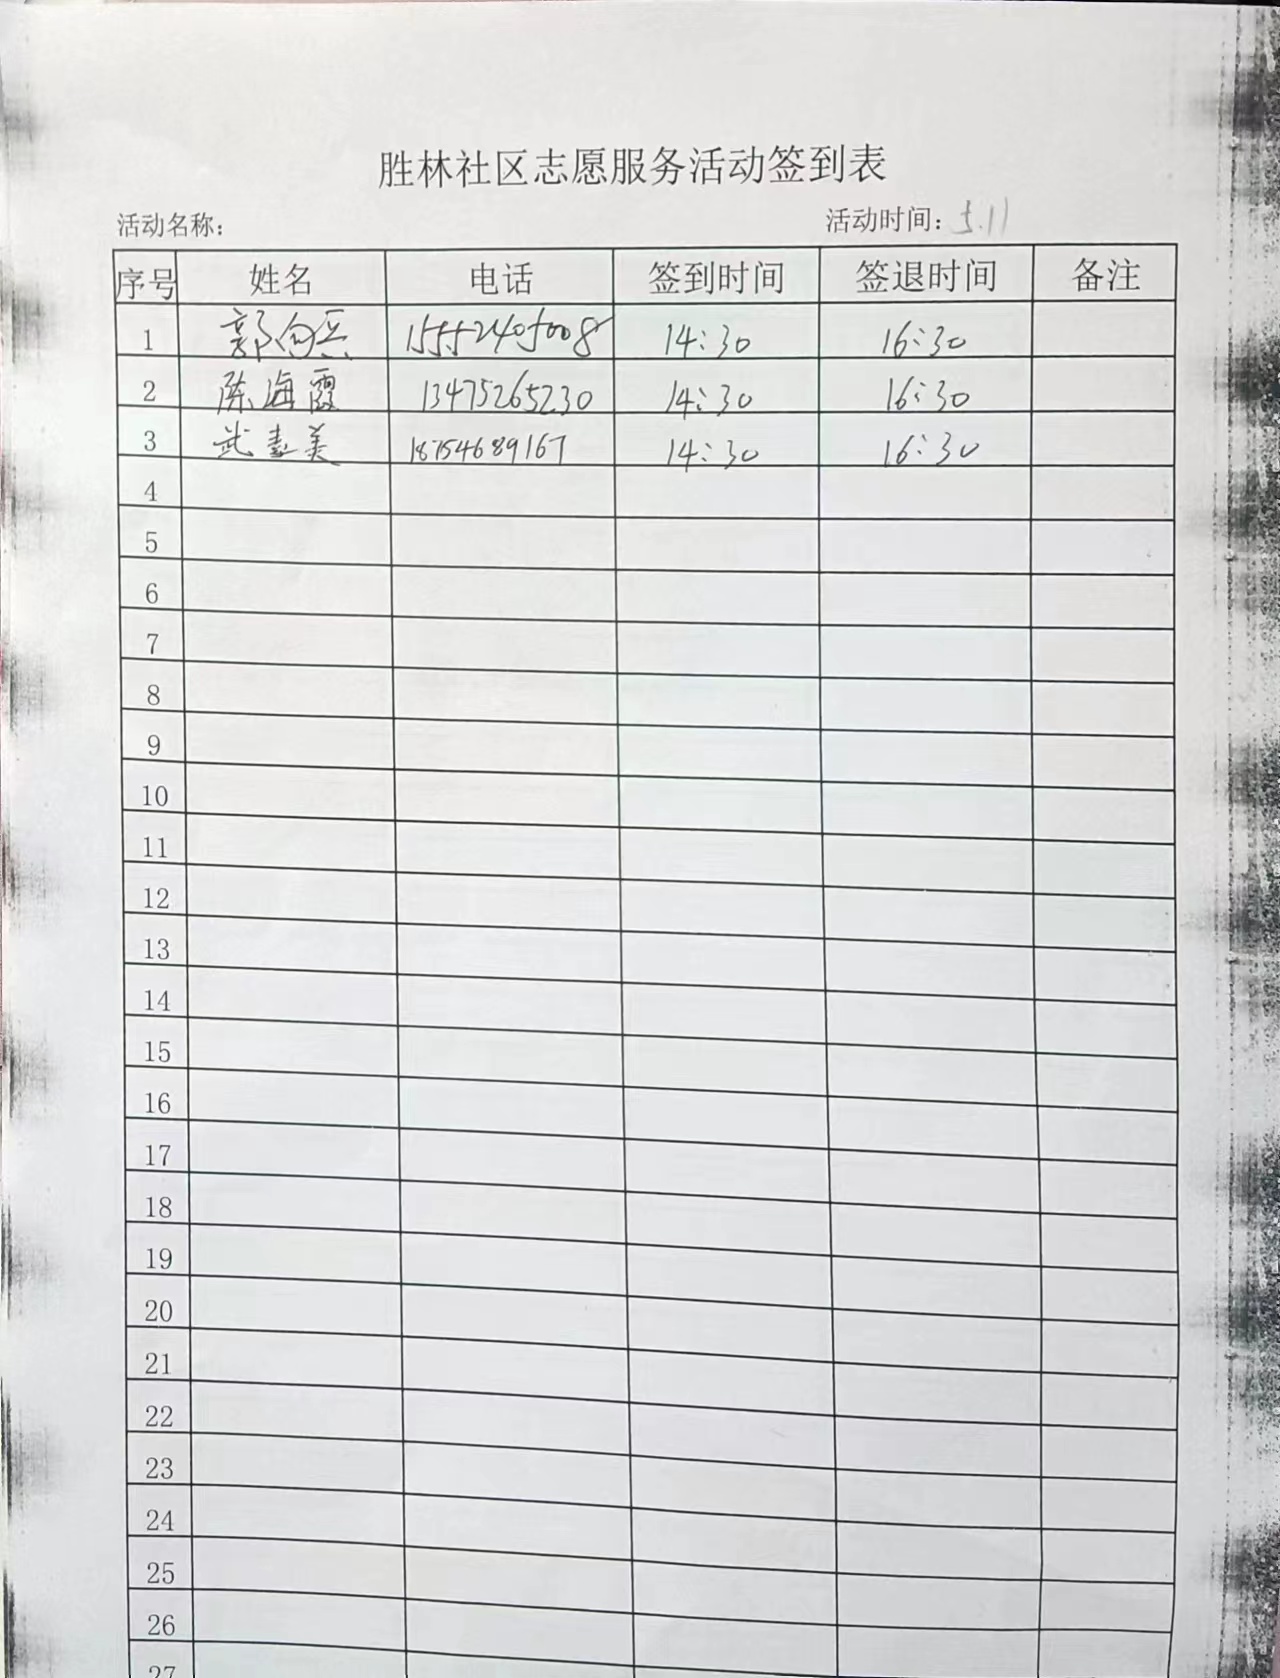 胜林社区志愿服务活动签到表
活动名称: 活动时间: 5.11
序号 姓名 电话 签到时间 签退时间 备注
1 郭向兵 15552405008 14:30 16:30
2 陈海霞 13475265230 14:30 16:30
3 武美 18754689167 14:30 16:30
4
5
6
7
8
9
10
11
12
13
14
15
16
17
18
19
20
21
22
23
24
25
26
27